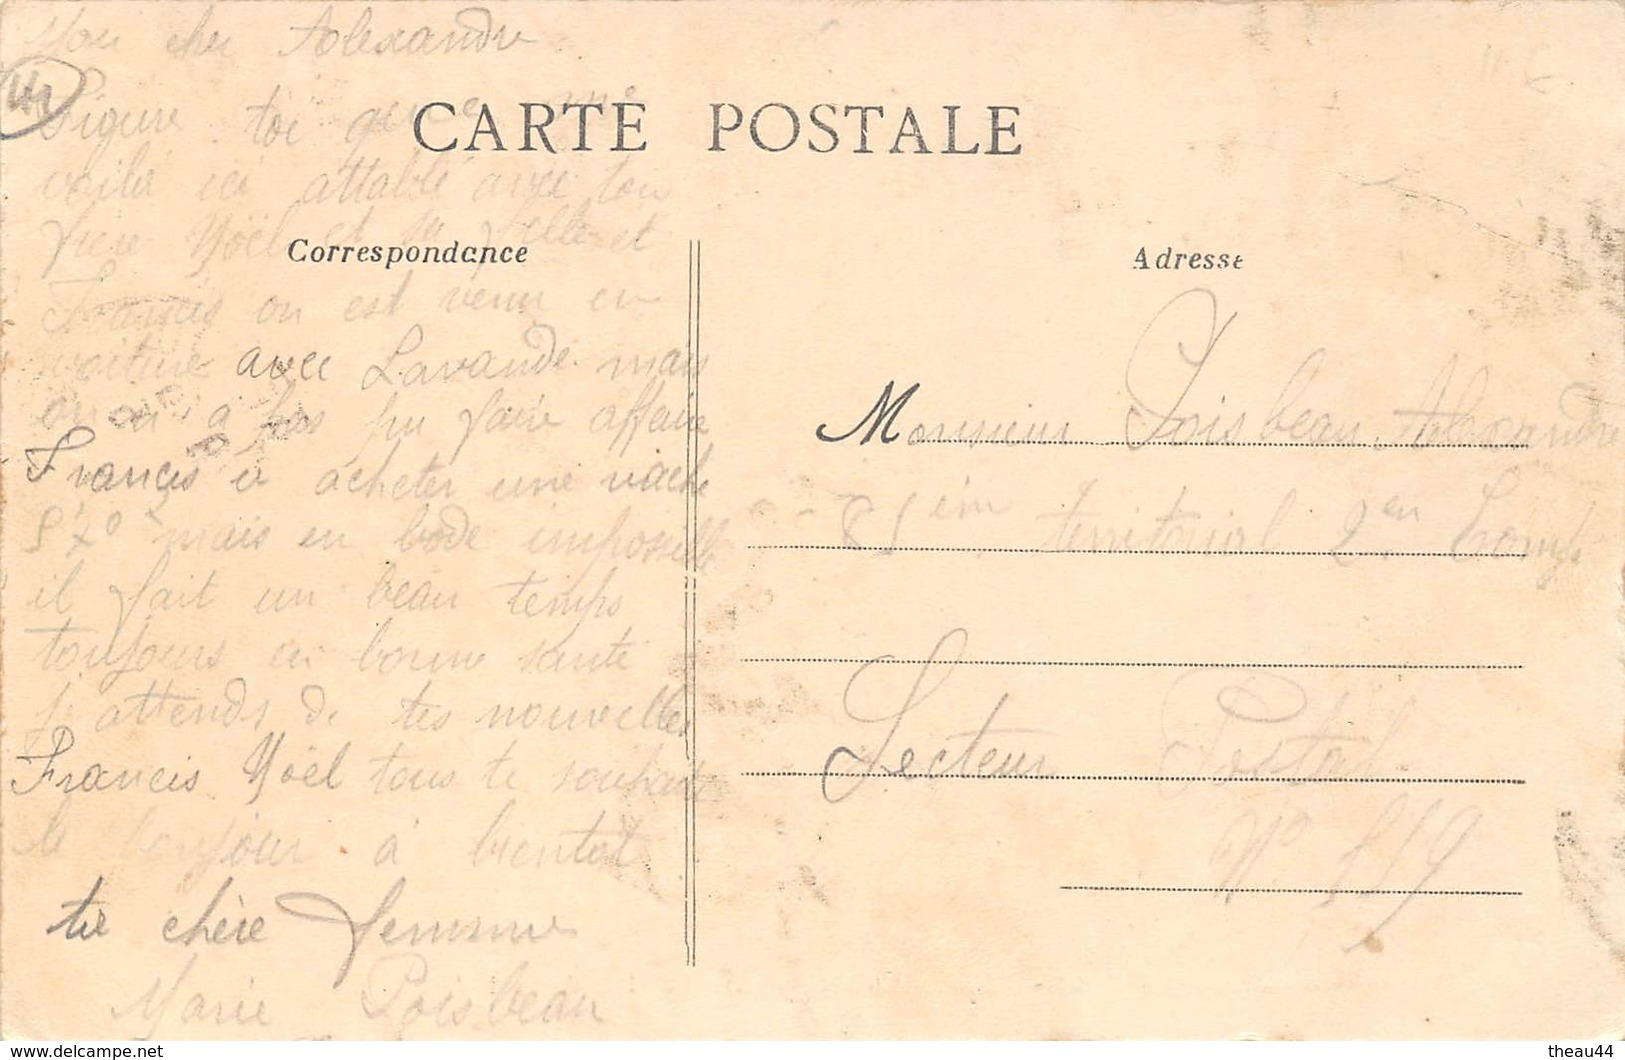 Mon cher Alexandre
Figure toi que me
CARTE POSTALE
voila ici attablé avec ton
frere Noël et sa fille et
Correspondance
Francis on est venu en
voiture avec Lavande mais
on n a pas pu faire affaire
Francis à acheter une vache
570 mais en bode impossible
il fait un beau temps
toujours en bonne santé
j attends de tes nouvelles
Francis Noël tous te souhaite
le bonjour à bientôt
ta chère femme
Marie Poisbeau
Adresse
Monsieur Poisbeau Alexandre
81 èm territorial 2 em Comp
Secteur Postal
N° 159
theau44